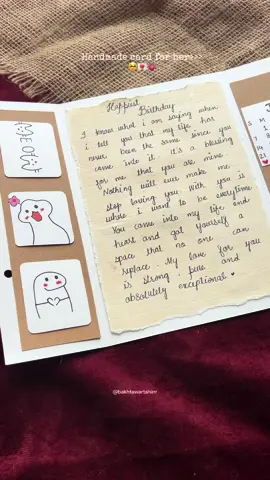 Handmade card for her>>
Happiest
Birthday
I know what i am saying when
i tell you that my life has
never been the same since you
came into it. It's a blessing
for me that you are mine.
Nothing will ever make me
stop loving you. With you is
where i want to be everytime
You came into my life and
heart and got yourself a
space that no one can
replace. My love for you
is strong, pure and
absolutely exceptional.
MEOW
S M
1
7 8
14
21
@bakhtawartahirr